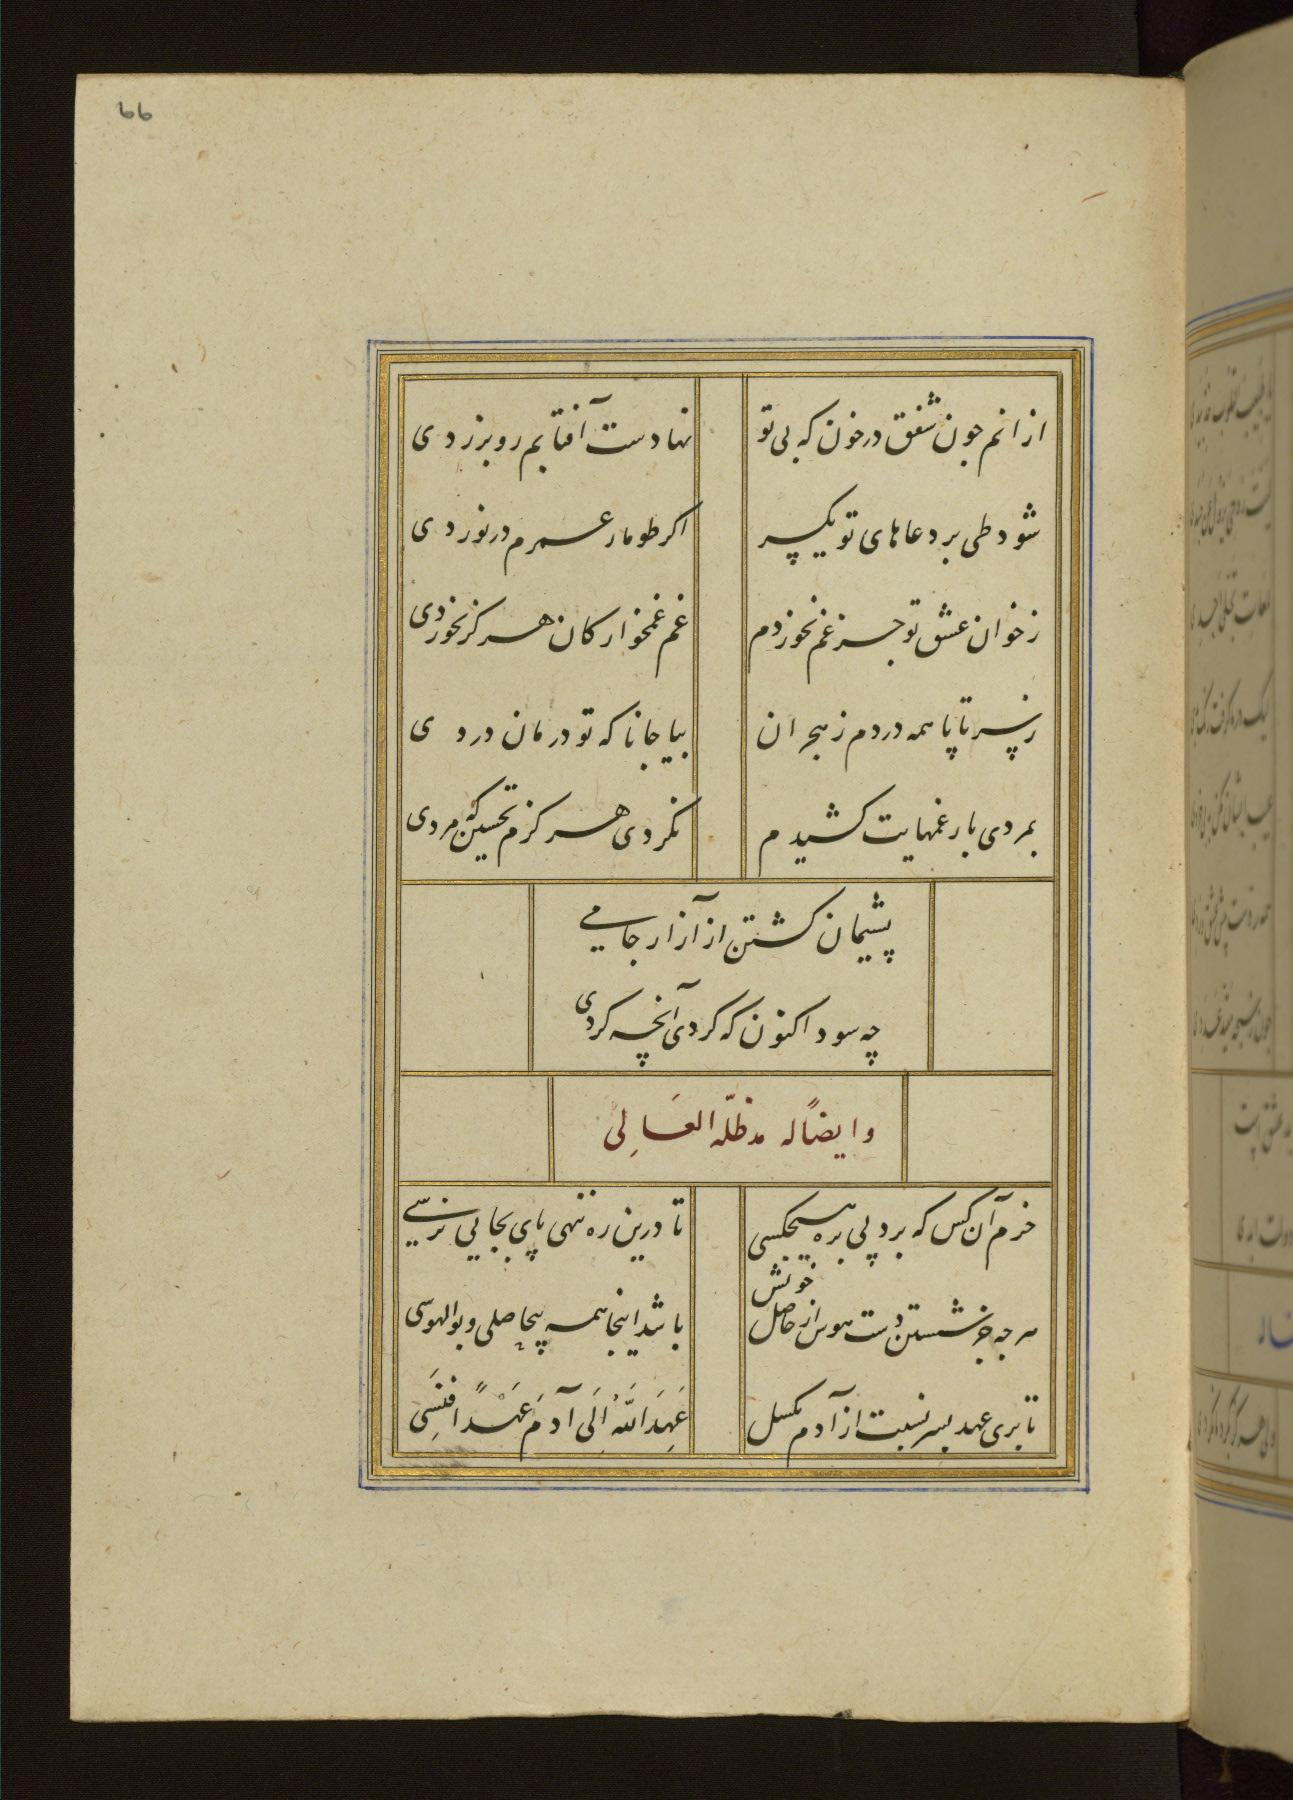 ٦٦
از انم چون شفق در خون که بی تو
نهادست آفتابم رو بزردی
شود طی بر دعاهای تو یکسر
اکر طومار عمرم در نوردی
ز خوان عشق تو جز غم نخوردم
غم غمخوارکان هرکز نخوردی
ز سر تا پا همه دردم ز هجران
بیا جانا که تو درمان دردی
بمردی بار غمهایت کشیدم
نکردی هرکزم تحسین که مردی
پشیمان کشتن از آزار جامی
چه سود اکنون که کردی آنچه کردی
وایضًا له مد ظلّه العَالِی
خرم آن کس که برد پی بره هیچکسی
تا درین ره ننهی پای بجایی نرسی
هر چه جز شستن دست هوس از حاصل خویش
باشد اینجا همه بیحاصلی و بوالهوسی
تا بری عهد بسر نسبت از آدم بکسل
عَهِدَ اللهُ اِلَی آدمَ عَهْدًا فَنَسِی